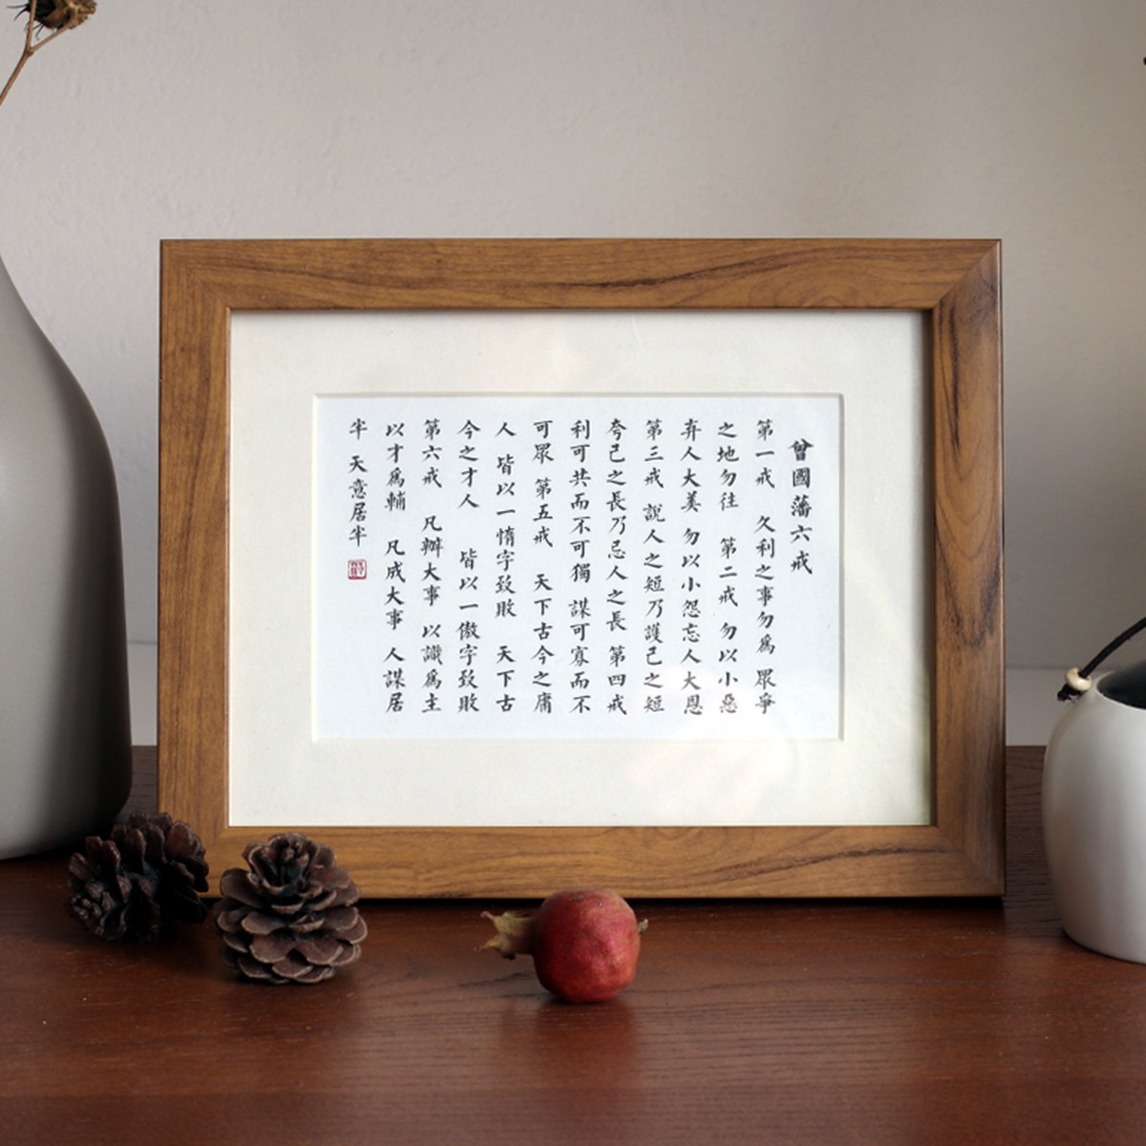 曾國藩六戒
第一戒 久利之事勿爲 眾爭
之地勿往 第二戒 勿以小惡
弃人大美 勿以小怨忘人大恩
第三戒 說人之短乃護己之短
夸己之長乃忌人之長 第四戒
利可共而不可獨 謀可寡而不
可眾 第五戒 天下古今之庸
人 皆以一惰字致敗 天下古
今之才人 皆以一傲字致敗
第六戒 凡辦大事 以識爲主
以才爲輔 凡成大事 人謀居
半 天意居半